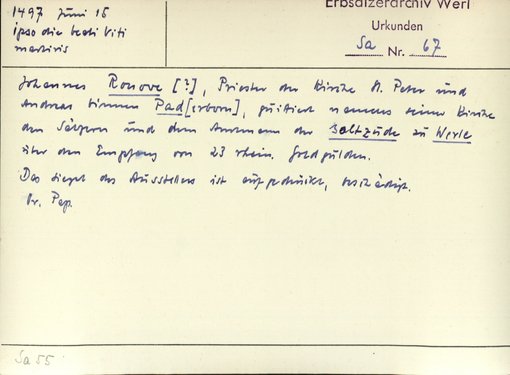 1497 Juni 15
ipso die beati Viti
martiris
Erbsälzerarchiv Werl
Urkunden
Sa Nr. 67
Johannes Ronove [?], Priester der Kirche St. Peter und
Andreas binnen Pad[erborn], quittiert namens seiner Kirche
den Sälzern und dem Amtmann der Saltzude zu Werle
über den Empfang von 23 rhein. Goldgulden.
Das Siegel des Ausstellers ist aufgedrückt, beschädigt.
Or. Pap.
Sa 55